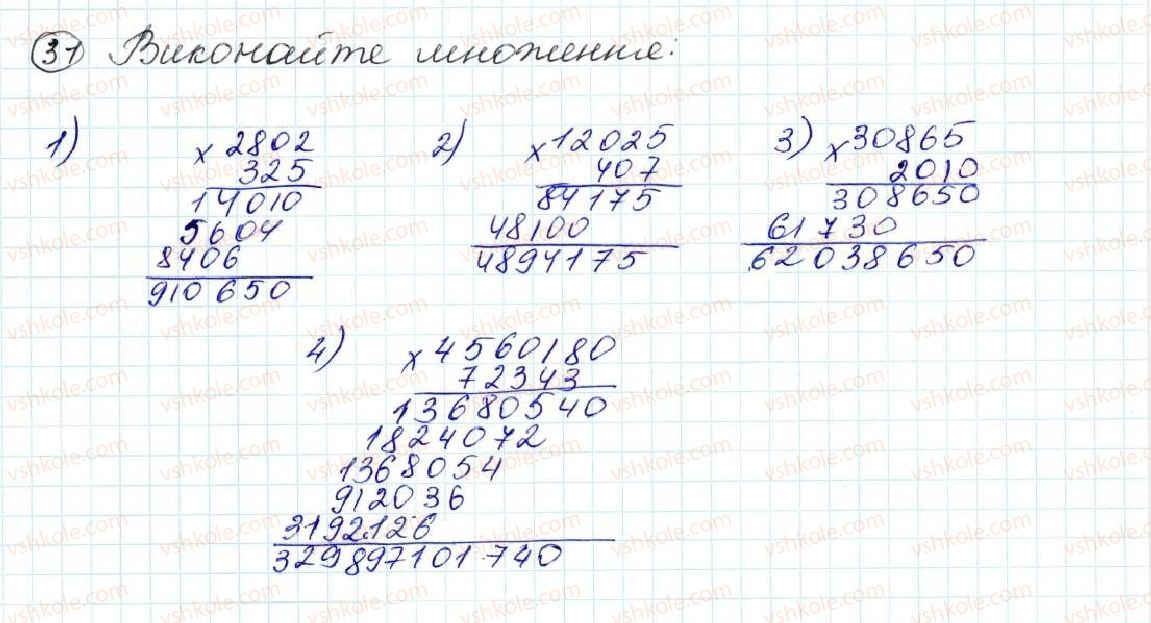 31 Виконайте множення:
1) × 2802
325
14010
5604
8406
910650
2) × 12025
407
84175
48100
4894175
3) × 30865
2010
308650
61730
62038650
4) × 4560180
72343
13680540
1824072
1368054
912036
3192126
329897101740